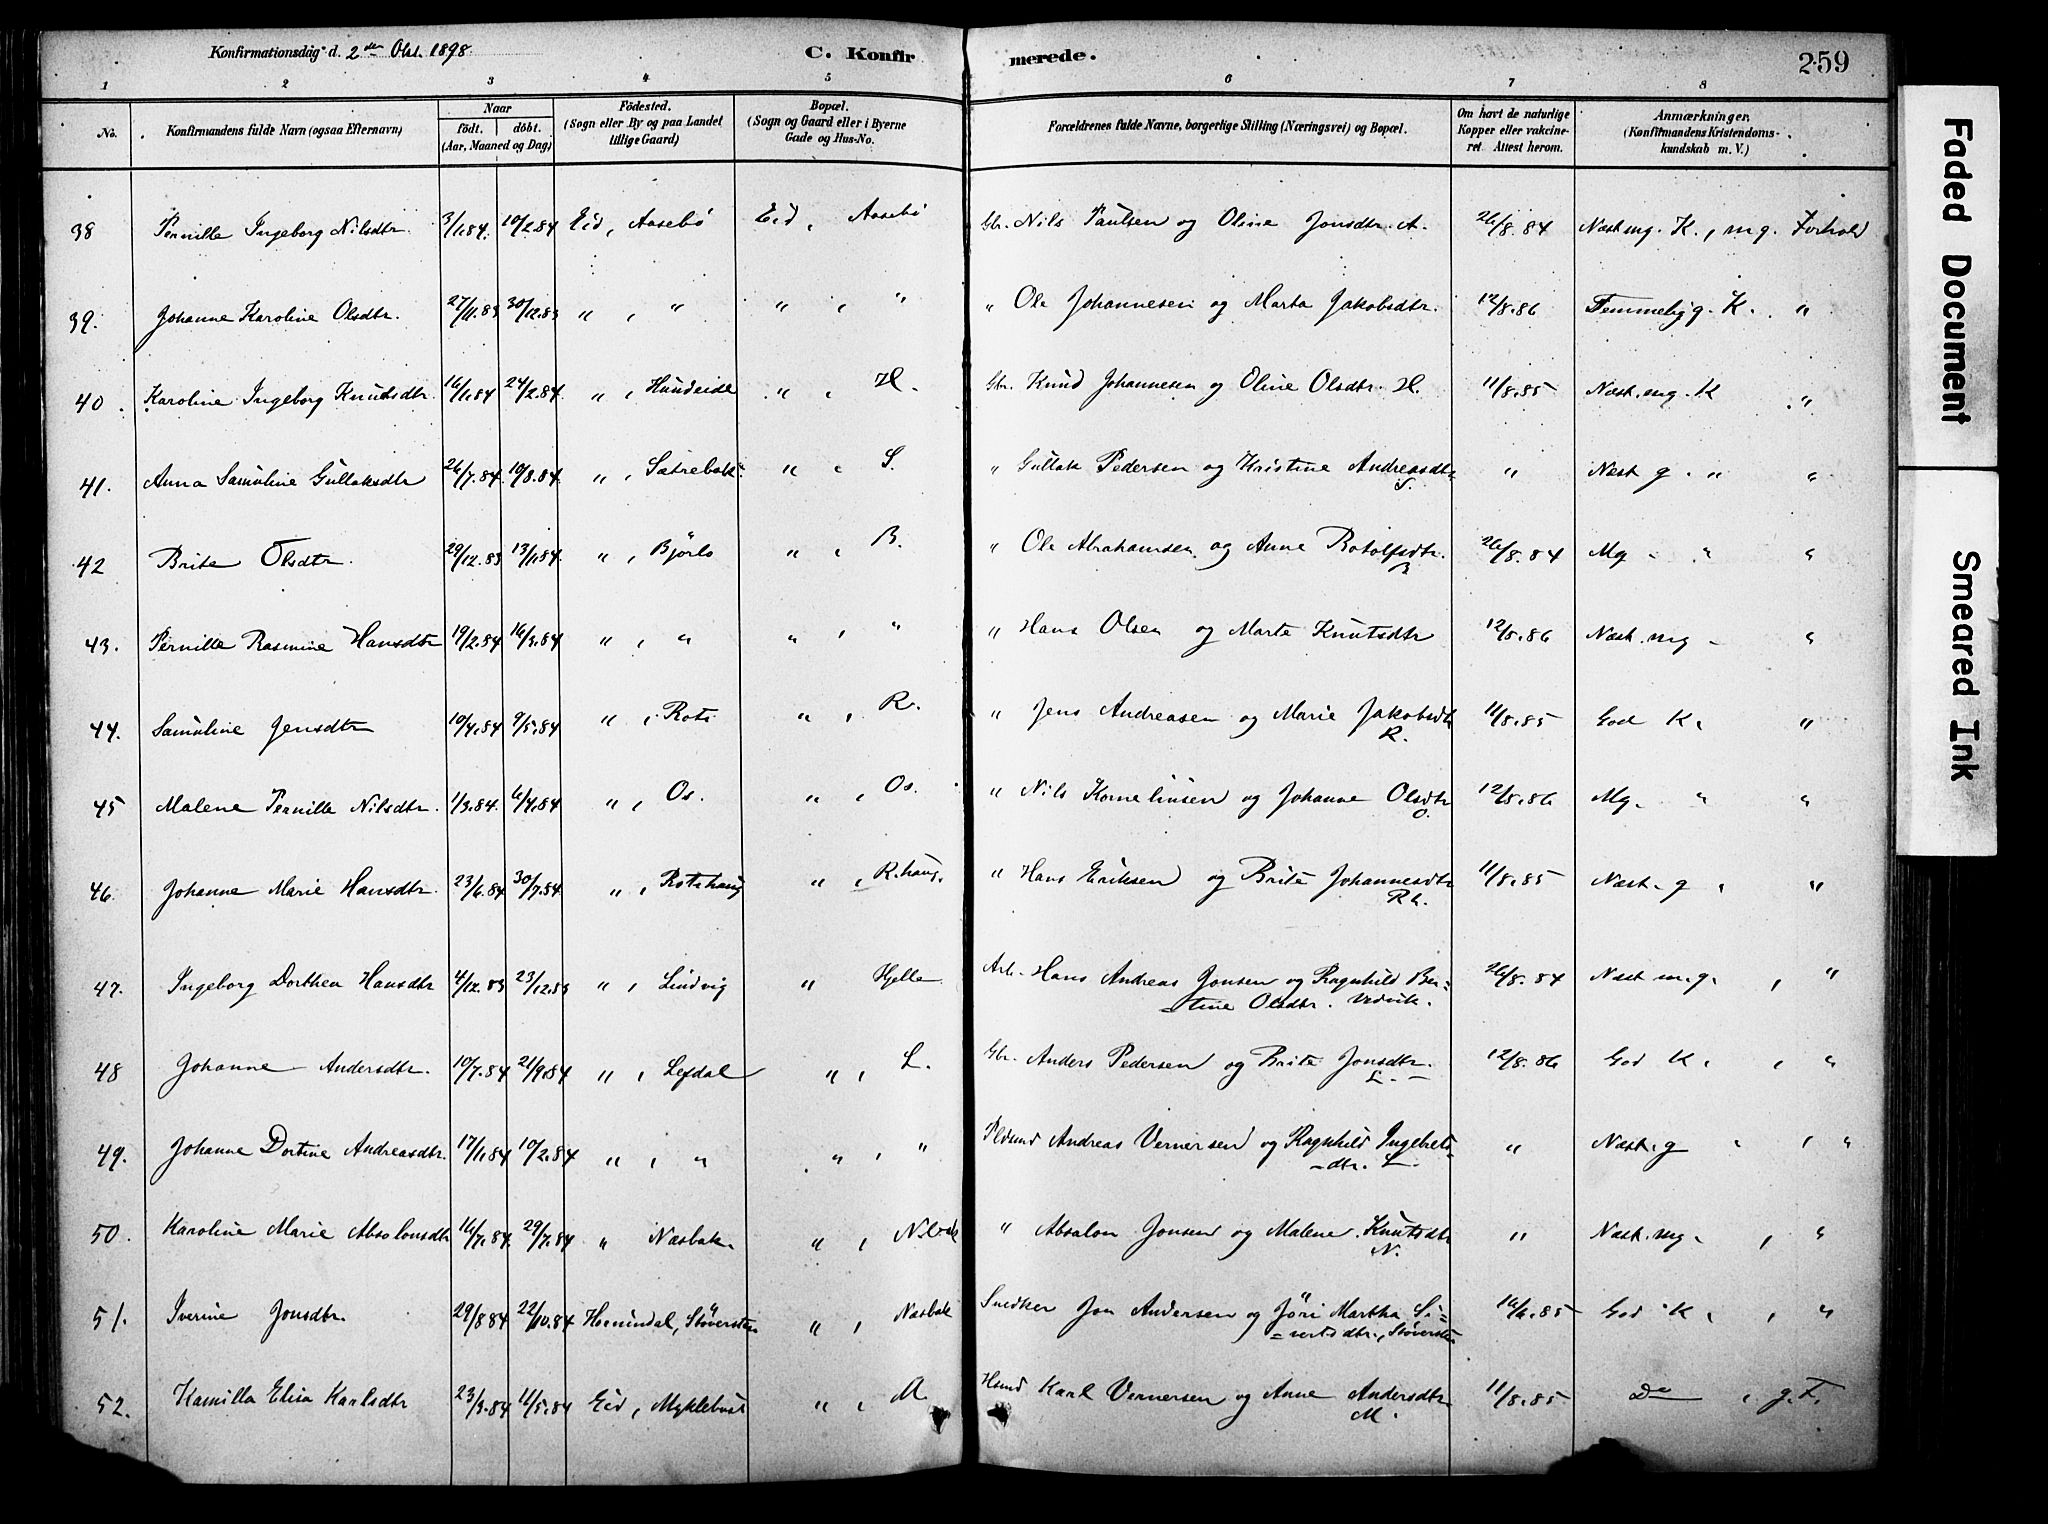 Konfirmationsdag d. 2den Okt. 1898
C. Konfirmerede.
259
1 2 3 4 5 6 7 8
No. Konfirmandens fulde Navn (ogsaa Efternavn) Naar født. døbt. (Aar, Maaned og Dag) Födested. (Sogn eller By og paa Landet tillige Gaard) Bopæl. (Sogn og Gaard eller i Byerne Gade og Hus-No. Forældrenes fulde Navne, borgerlige Stilling (Næringsvei) og Bopæl. Om havt de naturlige Kopper eller vakcineret. Attest herom. Anmærkninger. (Konfirmandens Kristendomskundskab m. V.)
38 Pernille Ingeborg Nilsdtr. 3/1.84. 10/2.84 Eid, Aasebö Eid, Aasebö Gbr. Nils Paulsen og Oline Jonsdtr. A. 26/8.84 Næst mg. K., mg. Forhold
39. Johanne Karoline Olsdtr. 27/11.83 30/12.83 " , " " , " " Ole Johannesen og Marta Jakobsdtr. 12/8.86 Temmelig g. K. , "
40. Karoline Ingeborg Knudsdtr 16/1.84 24/2.84 " , Hundeide " , H. Gbr. Knud Johannesen og Oline Olsdtr. H. 11/8.85 Næst. mg. K. "
41. Anna Samuline Gullaksdtr 26/7.84 10/8.84. " , Sætrebak. " , S. " Gullak Pedersen og Kristine Andreasdtr S. " Næst g. " "
42 Brite Olsdtr. 29/12.83 13/1.84. " , Bjørlo " , B. " Ole Abrahamsen og Anne Rotolfsdtr. B 26/8.84 Mg. " "
43. Pernille Rasmine Hansdtr 19/2.84 16/3.84 " , " " , " " Hans Olsen og Marte Knutsdtr 12/8.86 Næst. mg. "
44. Samuline Jensdtr 10/4.84 9/5.84 " , Rots " , R. " Jens Andreasen og Marie Jakobsdtr R. 11/8.85 God K. "
45 Malene Pernille Nilsdtr. 1/3.84. 6/4.84 " , Os. " , Os. " Nils Korneliusen og Johanne Olsdtr O. 12/8.86 Mg. " "
46. Johanne Marie Hansdtr. 23/6.84 30/7.84 " , Rotshaug " , R.haug. " Hans Eriksen og Brite Johannesdtr Rh. 11/8.85 Næst. g , "
47. Ingeborg Dorthea Hansdtr 4/12.83 23/12.83 " , Lindvig " Hjelle Arb. Hans Andreas Jonsen og Ragnhild Ber=
=tine Olsdtr. Vedvik. 26/8.84 Næst m.g. , "
48 Johanne Andersdtr. 10/7.84 21/9.84 " , Lefdal " , L. Gbr. Anders Pedersen og Brite Jonsdtr. L. 12/8.86 God K. , "
49. Johanne Dortine Andreasdtr. 17/1.84 10/2.84 " , " " , " Pldsmd Andreas Vernersen og Ragnhild Ingebrets-
-dtr. L. " Næst. g " , "
50. Karoline Marie Absolonsdtr 16/7.84. 29/7.84 " Næsbak. " , N.bak " Absalon Jonsen og Malene Knutsdtr N. " Næst. mg. , "
51. Iverine Jonsdtr. 29/8 84 22/10.84 Hornindal, Störersten " , Næsbak Snedker Jon Andersen og Jöri Martha Si=
=vertsdtr., Störersten 16/6.85 God K , "
52. Kamilla Elisa Karlsdtr 23/3.84 11/5.84 Eid, Myklebust " , M. Hsmd Karl Vernersen og Anne Andersdtr M. 11/8.85 Do , g. F.
Faded Document
Smeared Ink